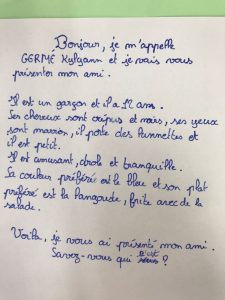 Bonjour, je m'appelle
GERMÉ Kylyann et je vais vous
présenter mon ami.
Il est un garçon et il a 12 ans.
Ses cheveux sont crépus et noirs, ses yeux
sont marron, il porte des lunnettes et
il est petit.
Il est amusant, drole et tranquille.
Sa couleur préférée est le bleu et son plat
préféré est la langouste, frite avec de la
salade.
Voila, je vous ai présenté mon ami.
Savez-vous qui c'est ?